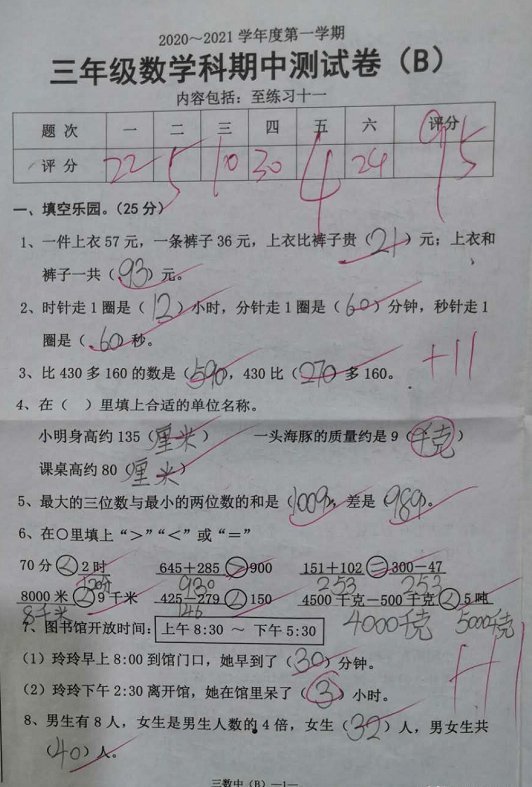 2020～2021学年度第一学期
三年级数学科期中测试卷（B）
内容包括：至练习十一
题 次 一 二 三 四 五 六 评分
评 分 22 5 10 30 4 24 95
一、填空乐园。（25分）
1、一件上衣57元，一条裤子36元，上衣比裤子贵（21）元；上衣和
裤子一共（93）元。
2、时针走1圈是（12）小时，分针走1圈是（60）分钟，秒针走1
圈是（60）秒。
3、比430多160的数是（590），430比（270）多160。
+11
4、在（ ）里填上合适的单位名称。
小明身高约135（厘米） 一头海豚的质量约是9（千克）
课桌高约80（厘米）
5、最大的三位数与最小的两位数的和是（1009），差是（989）。
6、在○里填上“>”“<”或“=”
70分<2时 645+285>900 151+102=300-47
120分 930 253 253
8000米<9千米 425-279<150 4500千克-500千克<5吨
8千米 146 4000千克 5000千克
7、图书馆开放时间：上午8:30 ～ 下午5:30
（1）玲玲早上8:00到馆门口，她早到了（30）分钟。
（2）玲玲下午2:30离开馆，她在馆里呆了（3）小时。
+11
8、男生有8人，女生是男生人数的4倍，女生（32）人，男女生共
（40）人。
三数中（B）—1—